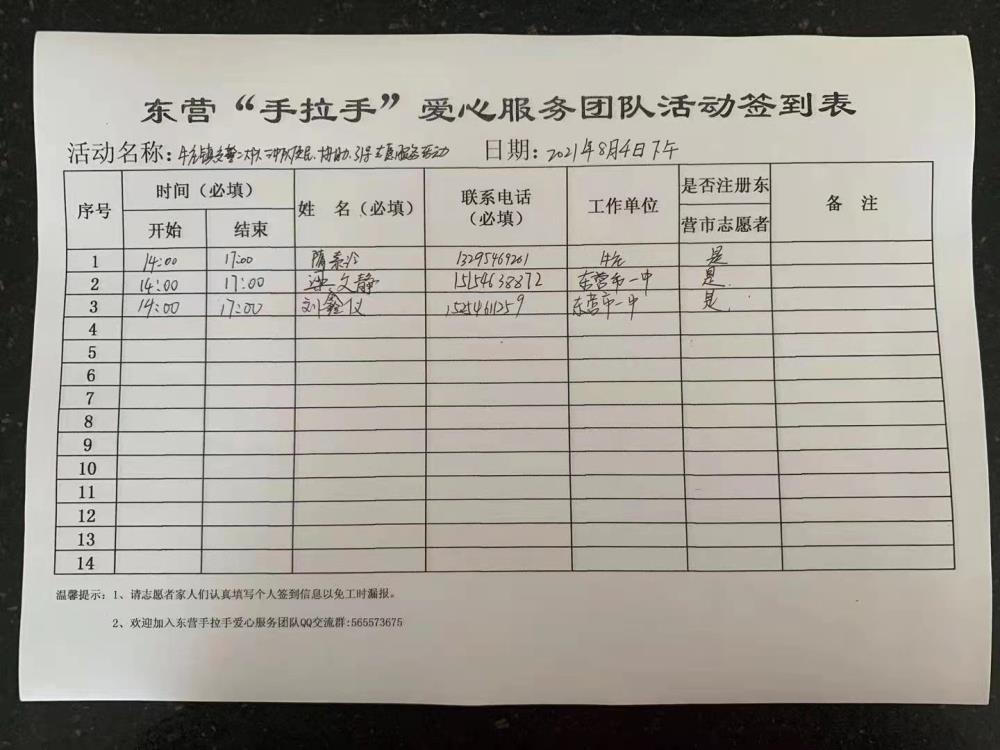 东营“手拉手”爱心服务团队活动签到表
活动名称：牛庄镇交警二大队 协助、引导志愿服务活动 日期：2021年8月4日下午
序号 时间（必填） 姓 名（必填） 联系电话（必填） 工作单位 是否注册东营市志愿者 备 注
开始 结束
1 14:00 17:00 隋 13295469201 牛庄 是
2 14:00 17:00 梁文静 15154638872 东营市一中 是
3 14:00 17:00 刘鑫仪 15254611259 东营市一中 是
4
5
6
7
8
9
10
11
12
13
14
温馨提示：1、请志愿者家人们认真填写个人签到信息以免工时漏报。
2、欢迎加入东营手拉手爱心服务团队QQ交流群:565573675